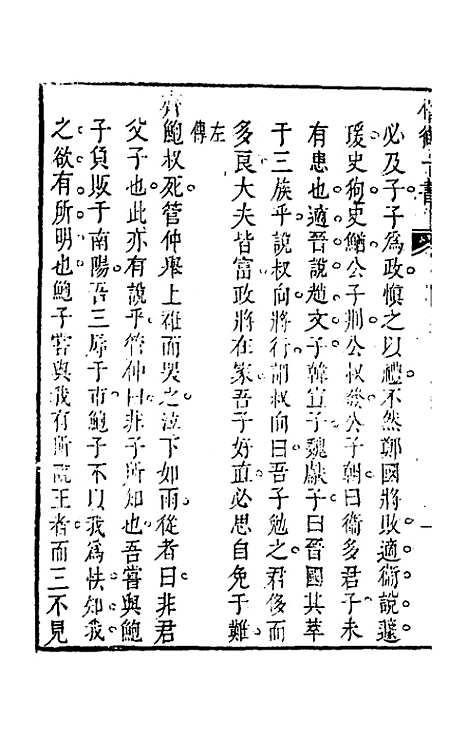 必及子子為政慎之以禮不然鄭國將敗適衛說蘧
瑗史狗史鰌公子荆公叔發公子朝曰衛多君子未
有患也適晉說趙文子韓宣子魏獻子曰晉國其萃
于三族乎說叔向將行謂叔向曰吾子勉之君侈而
多良大夫皆富政將在家吾子好直必思自免于難
左傳
齊鮑叔死管仲舉上衽而哭之泣下如雨從者曰非君
父子也此亦有說乎管仲曰非子所知也吾嘗與鮑
子負販于南陽吾三辱于市鮑子不以我為怯知我
之欲有所明也鮑子嘗與我有所說王者而三不見